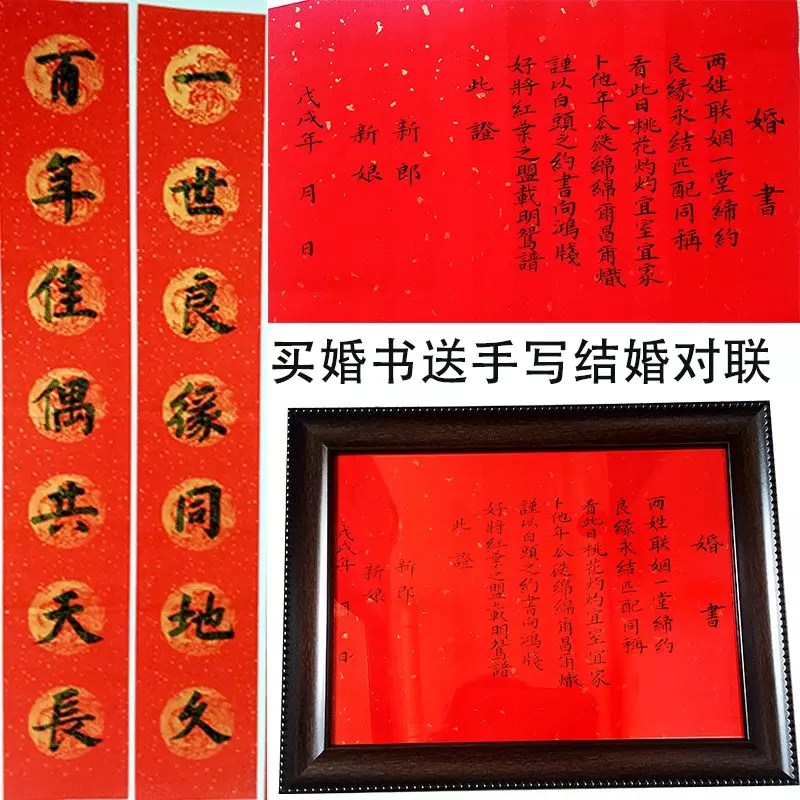 一世良缘同地久
百年佳偶共天長
婚書
两姓联姻一堂締約
良緣永结匹配同稱
看此日桃花灼灼宜室宜家
卜他年瓜瓞綿綿爾昌爾熾
謹以白頭之約書向鴻牋
好將紅葉之盟載明鴛譜
此證
新郎
新娘
戊戌年 月 日
买婚书送手写结婚对联
婚書
两姓联姻一堂締約
良緣永结匹配同稱
看此日桃花灼灼宜室宜家
卜他年瓜瓞綿綿爾昌爾熾
謹以白頭之約書向鴻牋
好將紅葉之盟載明鴛譜
此證
新郎
新娘
戊戌年 月 日